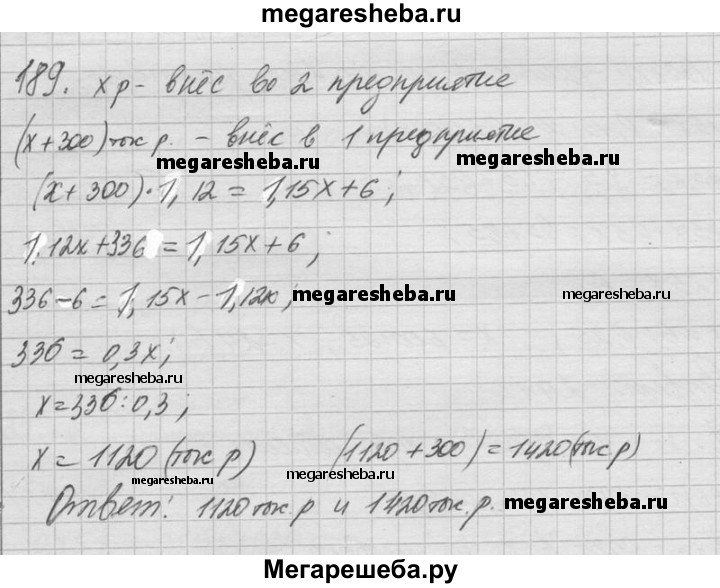 megaresheba.ru
189. х р - внёс во 2 предприятие
(х+300) тыс р. - внёс в 1 предприятие
megaresheba.ru megaresheba.ru
(х+300)·1,12 = 1,15х+6;
1,12х+336=1,15х+6;
336-6=1,15х-1,12х; megaresheba.ru megaresheba.ru
336=0,3х;
megaresheba.ru
х=336:0,3;
х=1120 (тыс р) (1120+300)=1420(тыс р)
megaresheba.ru megaresheba.ru
Ответ: 1120 тыс. р и 1420 тыс. р. megaresheba.ru
Мегарешеба.ру